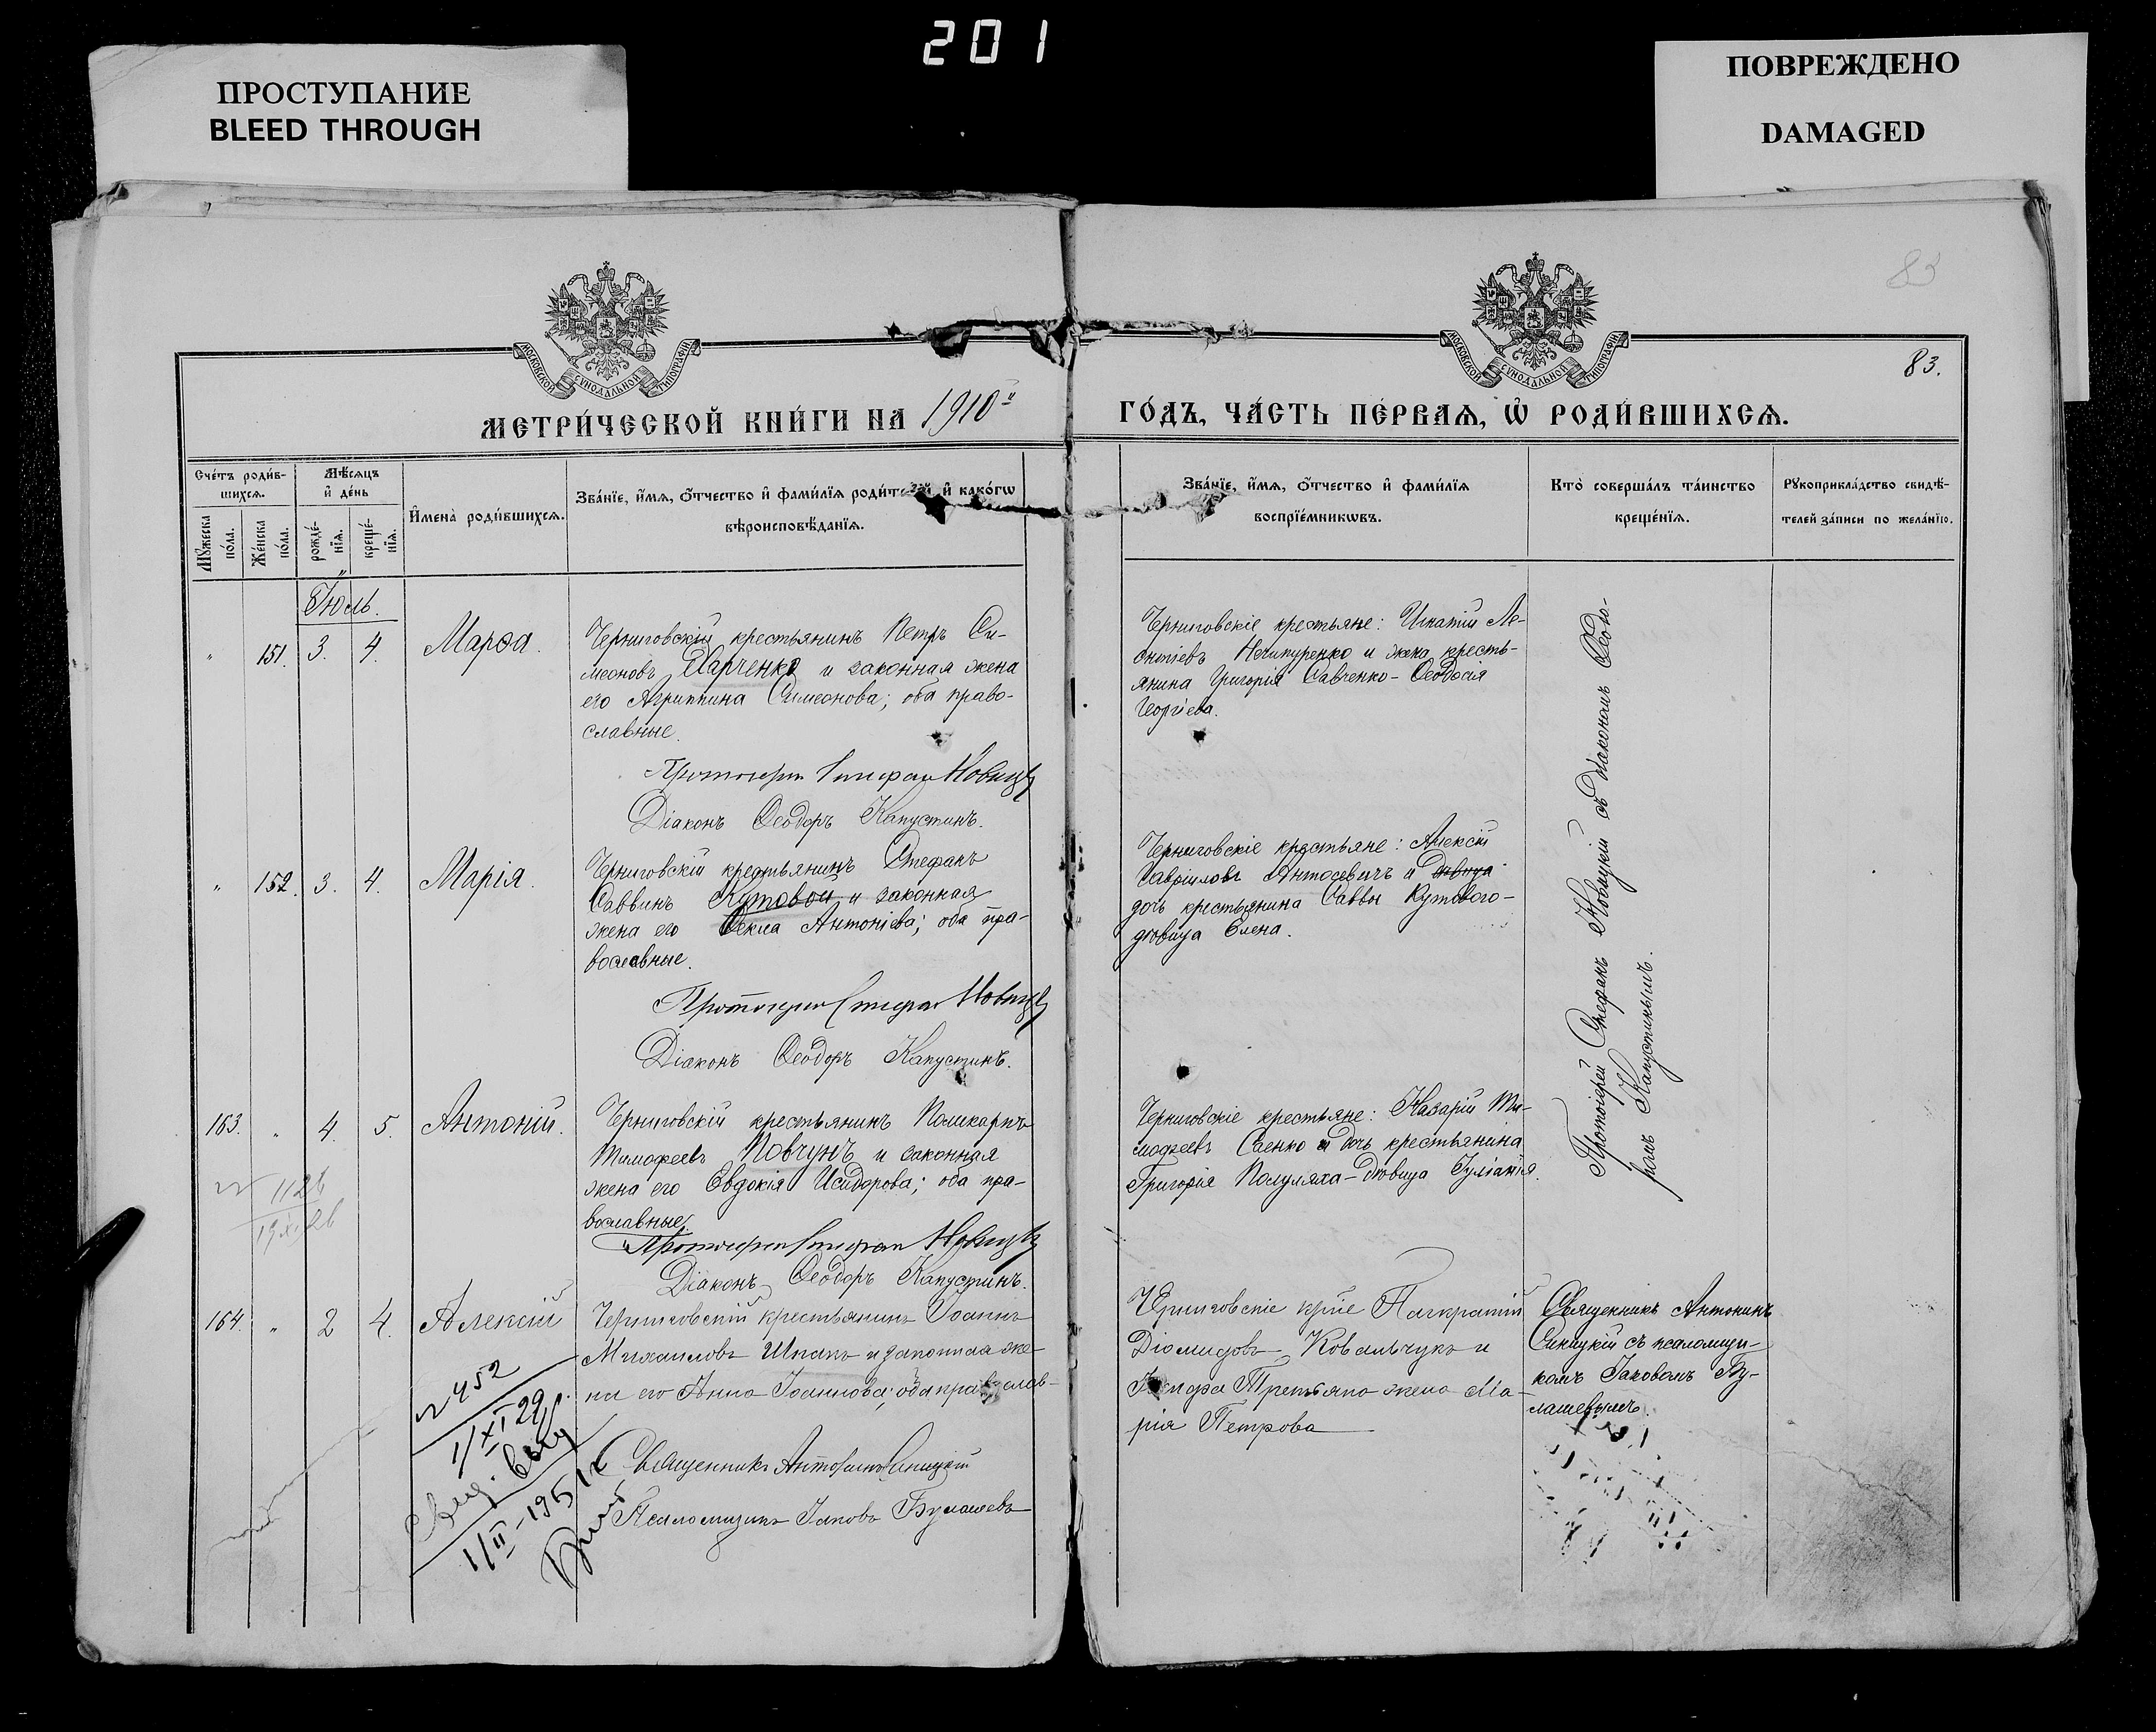 201
ПРОСТУПАНИЕ
BLEED THROUGH
ПОВРЕЖДЕНО
DAMAGED
83
83.
МОСКОВСКОЙ СУНОДАЛЬНОЙ ТИПОГРАФІИ
МОСКОВСКОЙ СУНОДАЛЬНОЙ ТИПОГРАФІИ
МЕТРИ́ЧЕСКОЙ КНИ́ГИ НА 1910й
ГО́ДЪ, ЧА́СТЬ ПЕ́РВАѦ, Ѡ҆ РОДИ́ВШИХСѦ.
Сче́тъ роди́в-
шихсѧ.
Мѣ́сѧцъ
и҆ де́нь
Мꙋ́жеска
по́ла.
Же́нска
по́ла.
рожде́-
нїѧ.
креще́-
нїѧ.
И҆мена̀ роди́вшихсѧ.
Зва́нїе, и҆́мѧ, ѻ҆́тчество и҆ фами́лїѧ роди́т и҆ како́гѡ
вѣроисповѣ́данїѧ.
Зва́нїе, и҆́мѧ, ѻ҆́тчество и҆ фами́лїѧ
воспрїе́мникѡвъ.
Кто̀ соверша́лъ та́инство
креще́нїѧ.
Рꙋкоприкла́дство свидѣ́-
телей за́писи по жела́нїю.
Іюль.
" 151. 3. 4. Марѳа.
Черниговскій крестьянинъ Петръ Си-
меоновъ Харченко и законная жена
его Агриппина Симеонова; оба право-
славные.
Протоіерей Стефан Новицкій
Діаконъ Ѳеодоръ Капустинъ.
Черниговскіе крестьяне: Игнатій Ле-
онтіевъ Нечипуренко и жена кресть-
янина Григорія Савченко - Ѳеодосія
Георгіева.
" 152. 3. 4. Марія.
Черниговскій крестьянинъ Стефанъ
Саввинъ Кутовой и законная
жена его Ѳекла Антоніева; оба пра-
вославные.
Протоіерей Стефан Новицкій
Діаконъ Ѳеодоръ Капустинъ.
Черниговскіе крестьяне: Алексій
Гавріиловъ Антосевичъ и девица
дочь крестьянина Саввы Кутового -
дѣвица Елена.
163. " 4. 5. Антоній.
Черниговскій крестьянинъ Поликарпъ
Тимофеевъ Повчунъ и законная
жена его Евдокія Исидорова; оба пра-
вославные.
Протоіерей Стефан Новицкій
Діаконъ Ѳеодоръ Капустинъ.
Черниговскіе крестьяне: Назарій Ти-
мофеевъ Саенко и дочь крестьянина
Григорія Полуляха - дѣвица Іуліанія.
Протоіерей Стефанъ Новицкій съ діакономъ Ѳеодо-
ромъ Капустинымъ.
164. " 2 4. Алексій
Черниговскій крестьянинъ Іоаннъ
Михаиловъ Шпакъ и законная же-
на его Анна Іоаннова; оба православ-
Священникъ Антонинъ Синицкій
Псаломщикъ Іаковъ Булашевъ
Черниговскіе кр\іе Панкратій
Діомидовъ Ковальчукъ и
Третьяка жена Ма-
рія Петрова
Священникъ Антонинъ
Синицкій съ псаломщи-
комъ Іаковомъ Бу-
лашевымъ.
№ 452
1/XI 29
1/II-195